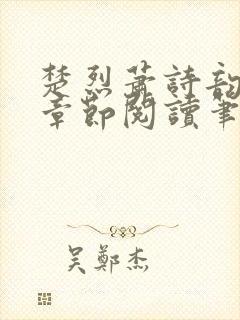 楚烈蕭詩韵
章節閱讀筆
吴鄭杰